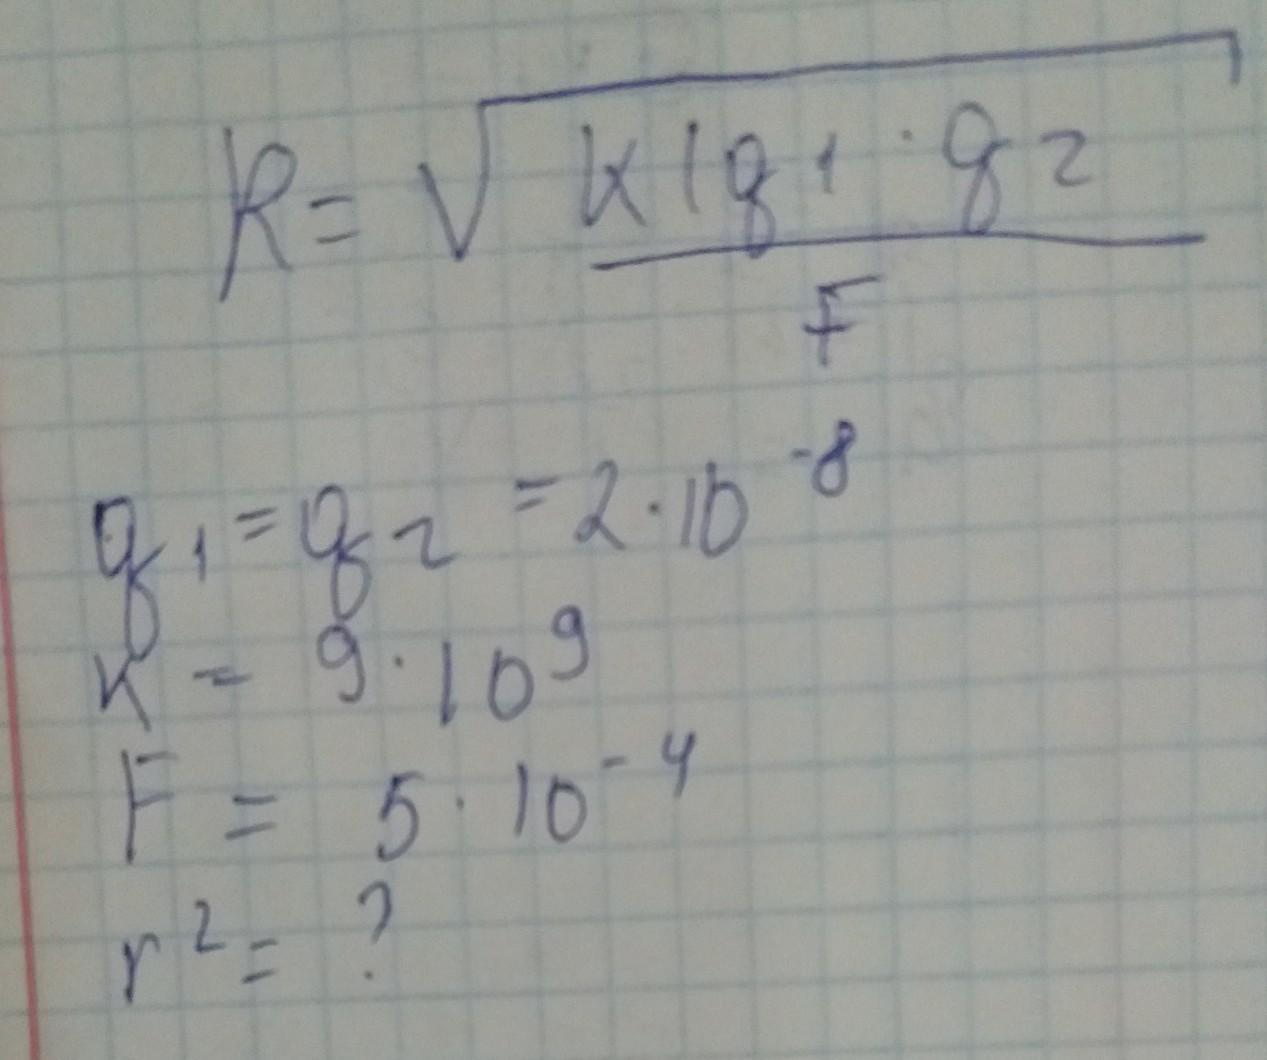 R = √ k|q1 · q2
F
q1 = q2 = 2 · 10^-8
k = 9 · 10^9
F = 5 · 10^-4
r^2 = ?